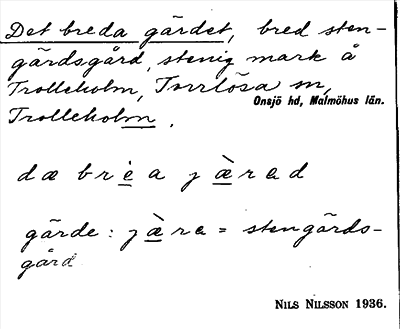 Det breda gärdet, bred sten-
gärdsgård, stenig mark å
Trolleholm, Torrlösa sn,
Onsjö hd, Malmöhus län.
Trolleholm.
dæ bre̲a jæ̲̀rad
gärde: jæ̲̀ra = stengärds-
gård
NILS NILSSON 1936.